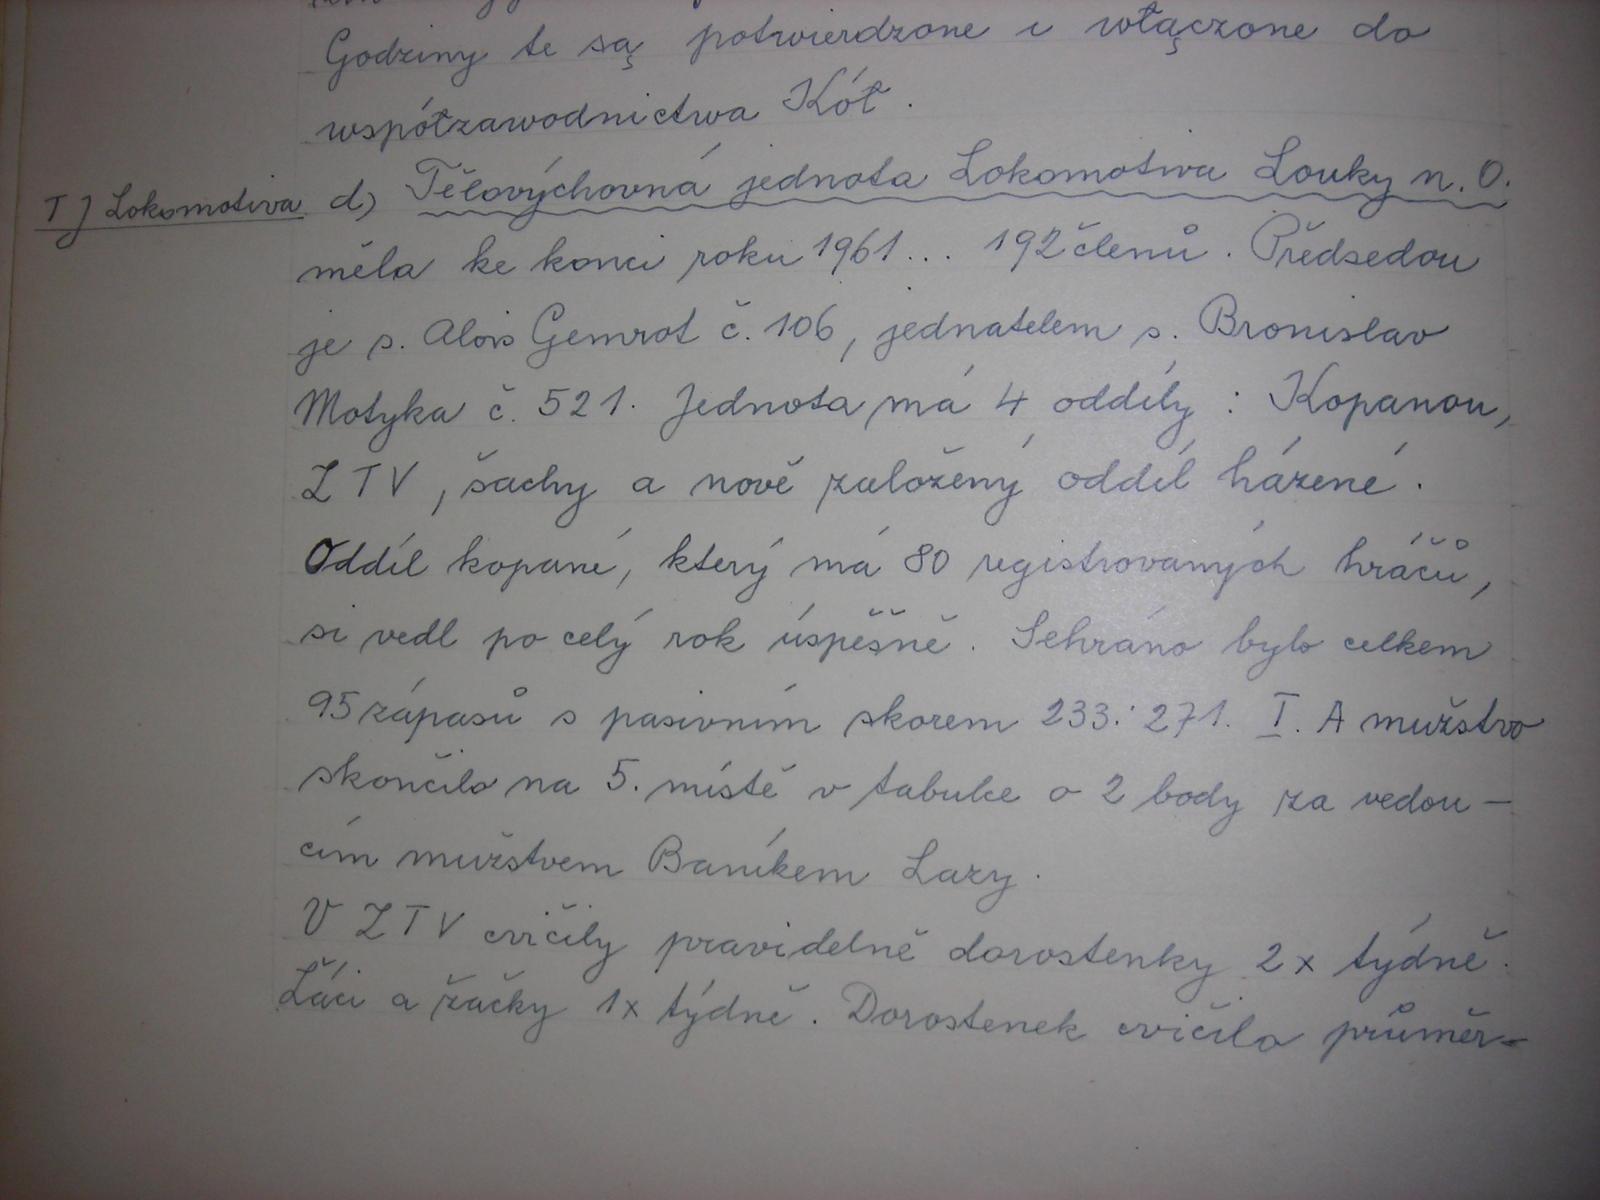 Godziny te są potwierdzone i włączone do
współzawodnictwa Kół.
TJ Lokomotiva d) Tělovýchovná jednota Lokomotiva Louky n. O.
měla ke konci roku 1961... 192 členů. Předsedou
je s. Alois Gemrot č. 106, jednatelem s. Bronislav
Motyka č. 521. Jednota má 4 oddíly: Kopanou,
ZTV, šachy a nově založený oddíl házené.
Oddíl kopané, který má 80 registrovaných hráčů,
si vedl po celý rok úspěšně. Sehráno bylo celkem
95 zápasů s pasivním skorem 233:271. I. A mužstvo
skončilo na 5. místě v tabulce o 2 body za vedou-
cím mužstvem Baníkem Lazy.
V ZTV cvičily pravidelně dorostenky 2x týdně.
Žáci a žačky 1x týdně. Dorostenek cvičilo průměr-